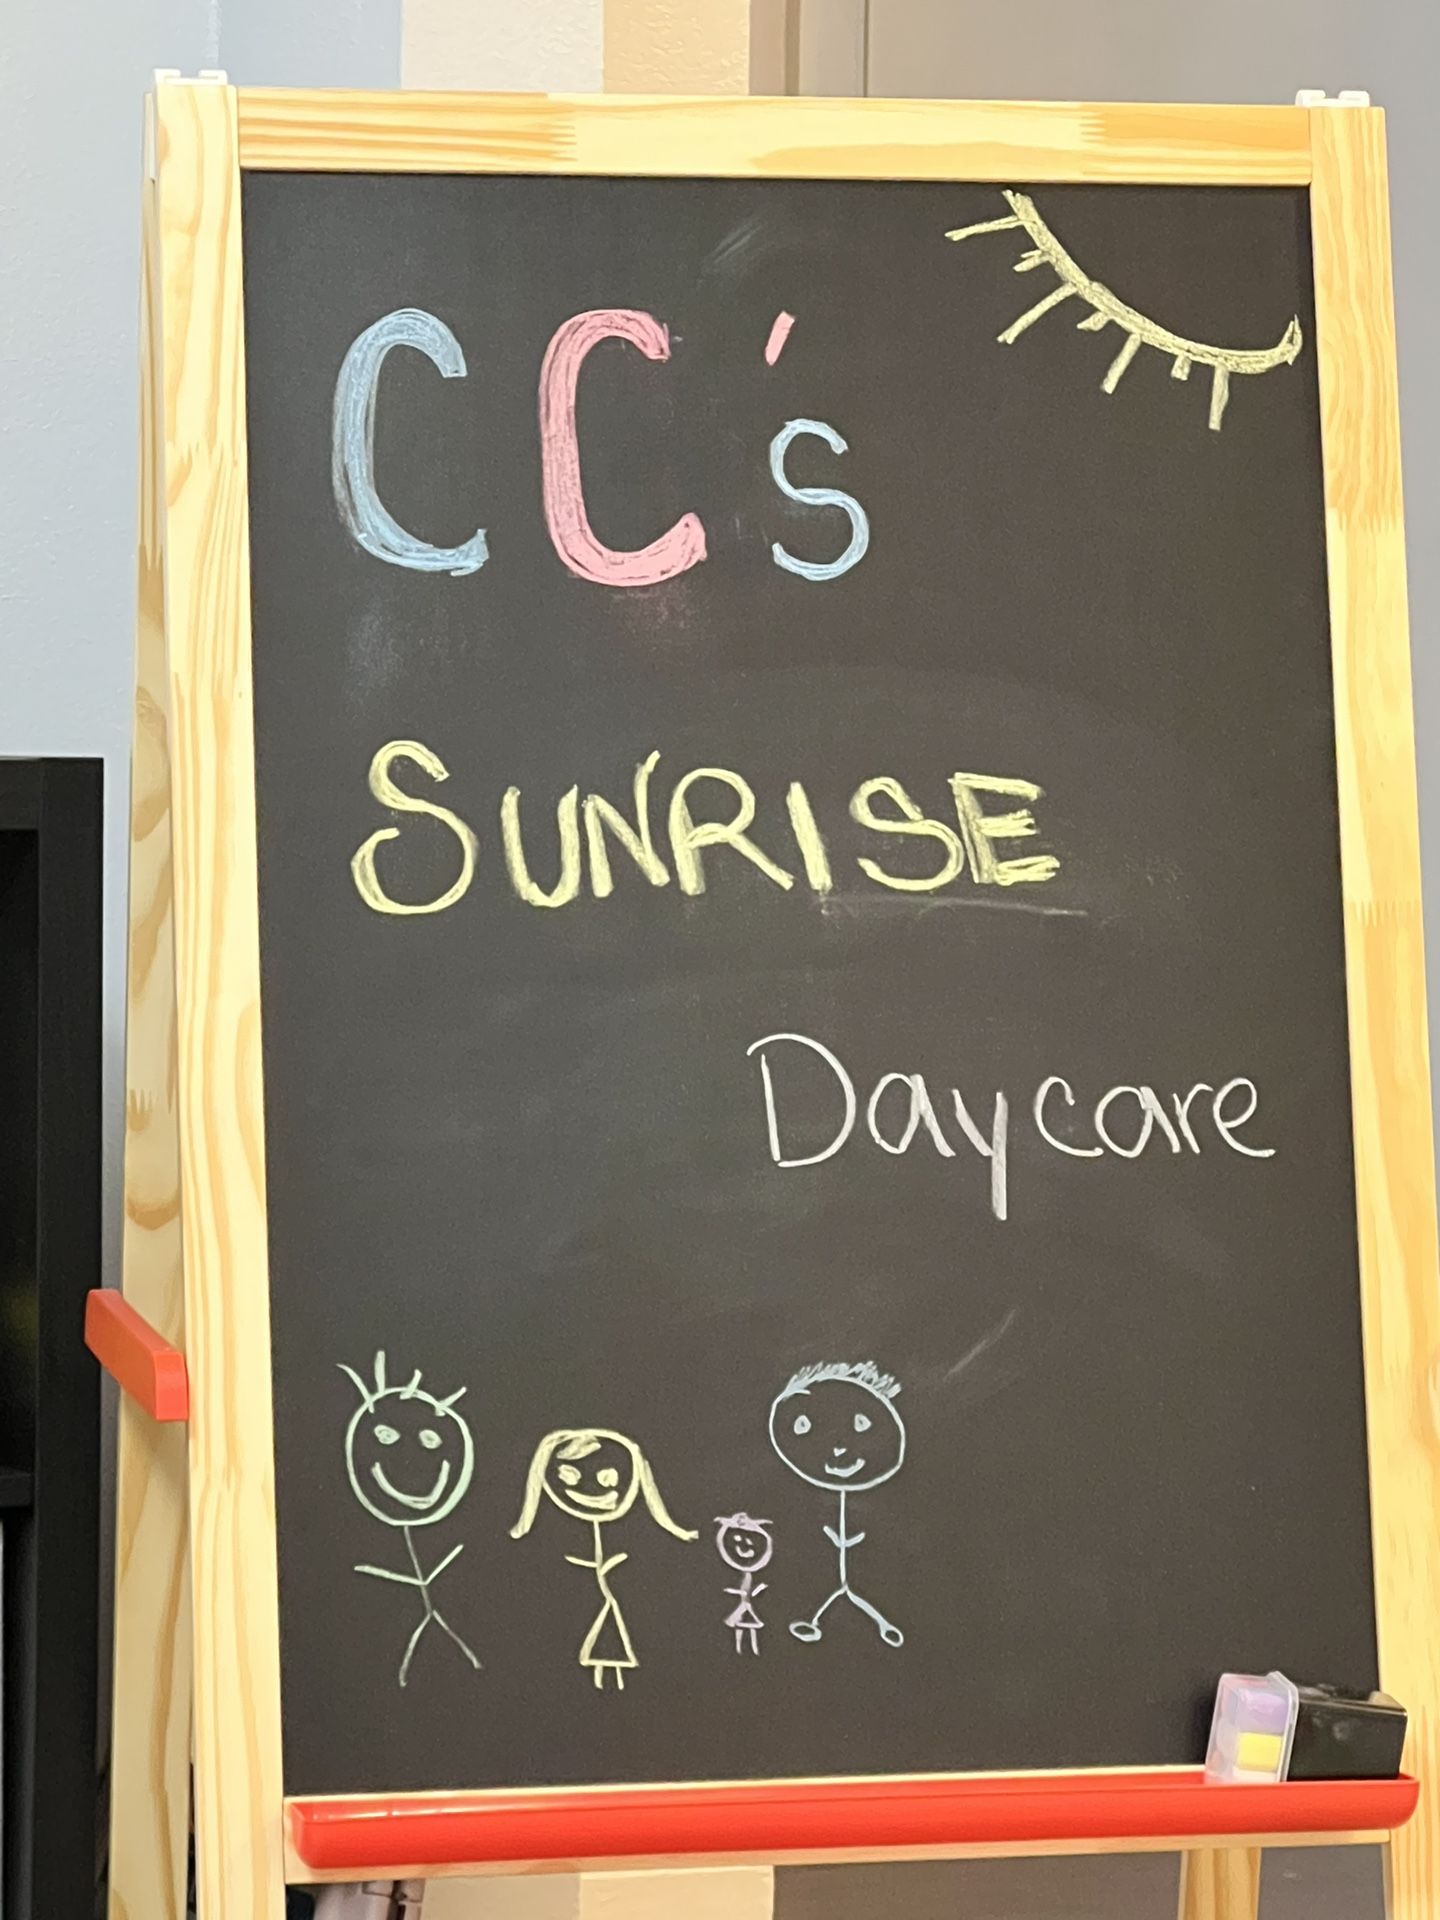 CC's
SUNRISE
Daycare